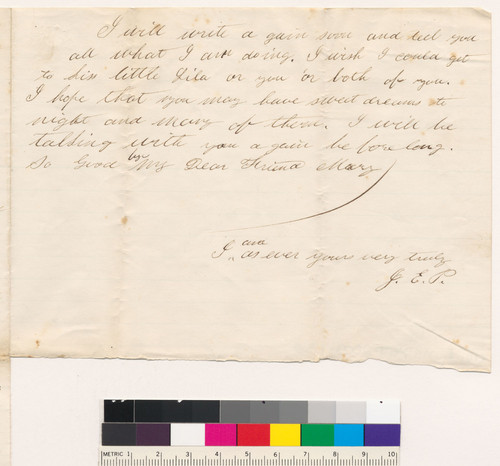 I will write a gain soon and tell you
all what I am doing. I wish I could get
to kiss little Lila or you or both of you.
I hope that you may have sweet dreams to
night and many of them. I will be
talking with you again be fore long.
So Good by My Dear Friend Mary
I am as ever your very truly
J. E. P.
METRIC 1 2 3 4 5 6 7 8 9 10